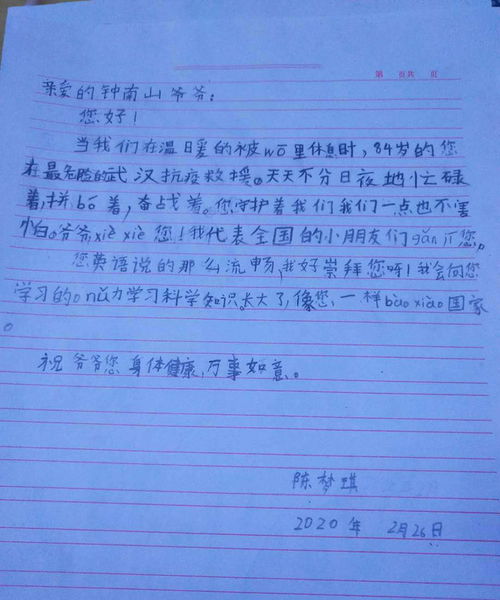 第 页共 页
亲爱的钟南山爷爷:
您好!
当我们在温暖的被wō里休息时,84岁的您
在最危险的武汉抗疫救援。天天不分日夜地忙碌
着,拼bó着,奋战着。您守护着我们我们一点也不害
怕。爷爷,xiè xiè您!我代表全国的小朋友们gǎn jī您。
您英语说的那么流畅,我好崇拜您呀!我会向您
学习的。nǔ力学习科学知识。长大了,像您,一样bào xiào国家
。
祝爷爷您身体健康,万事如意。
陈梦琪
2020年 2月26日